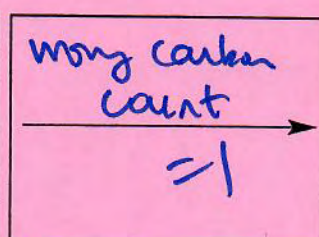 wrong carbon
count
=1